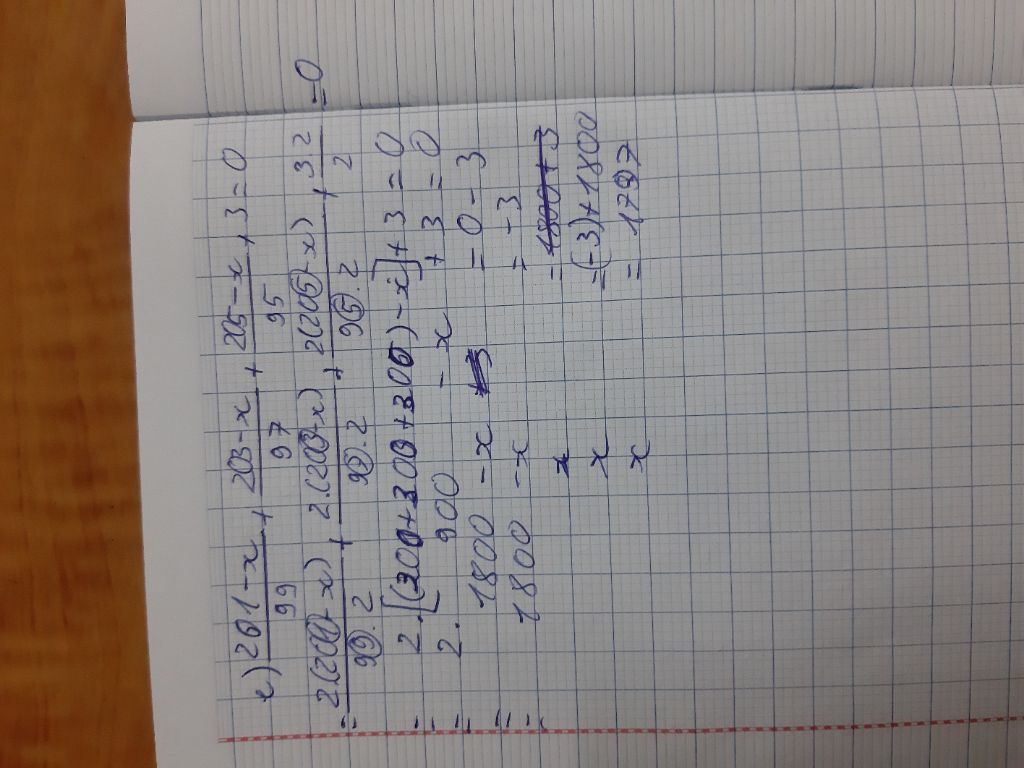 e) 201-x/99 + 203-x/97 + 205-x/95 + 3 = 0
= 2(200-x)/99.2 + 2.(200-x)/99.2 + 2(205-x)/95.2 + 3.2/2 = 0
= 2.[(300+300+300)-x]+3 = 0
= 2. 900 - x + 3 = 0
= 1800 - x = 0 - 3
= 1800 - x = -3
x = 1800+3
x = (-3)+1800
x = 1797